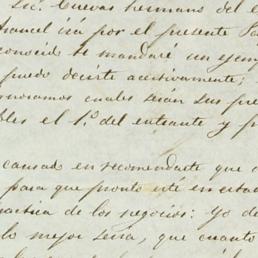 Lic. Cuevas hermano del
Manuel irá por el presente Pa
conocid te mandaré un ejem
puedo decirte acertivamente;
ignoramos cuales serán sus pre
bles el 1.º del entrante y p
cansad en recomendarte que
para que pronto esté en estad
practica de los negocios: Yo de
lo mejor sería, que cuanto